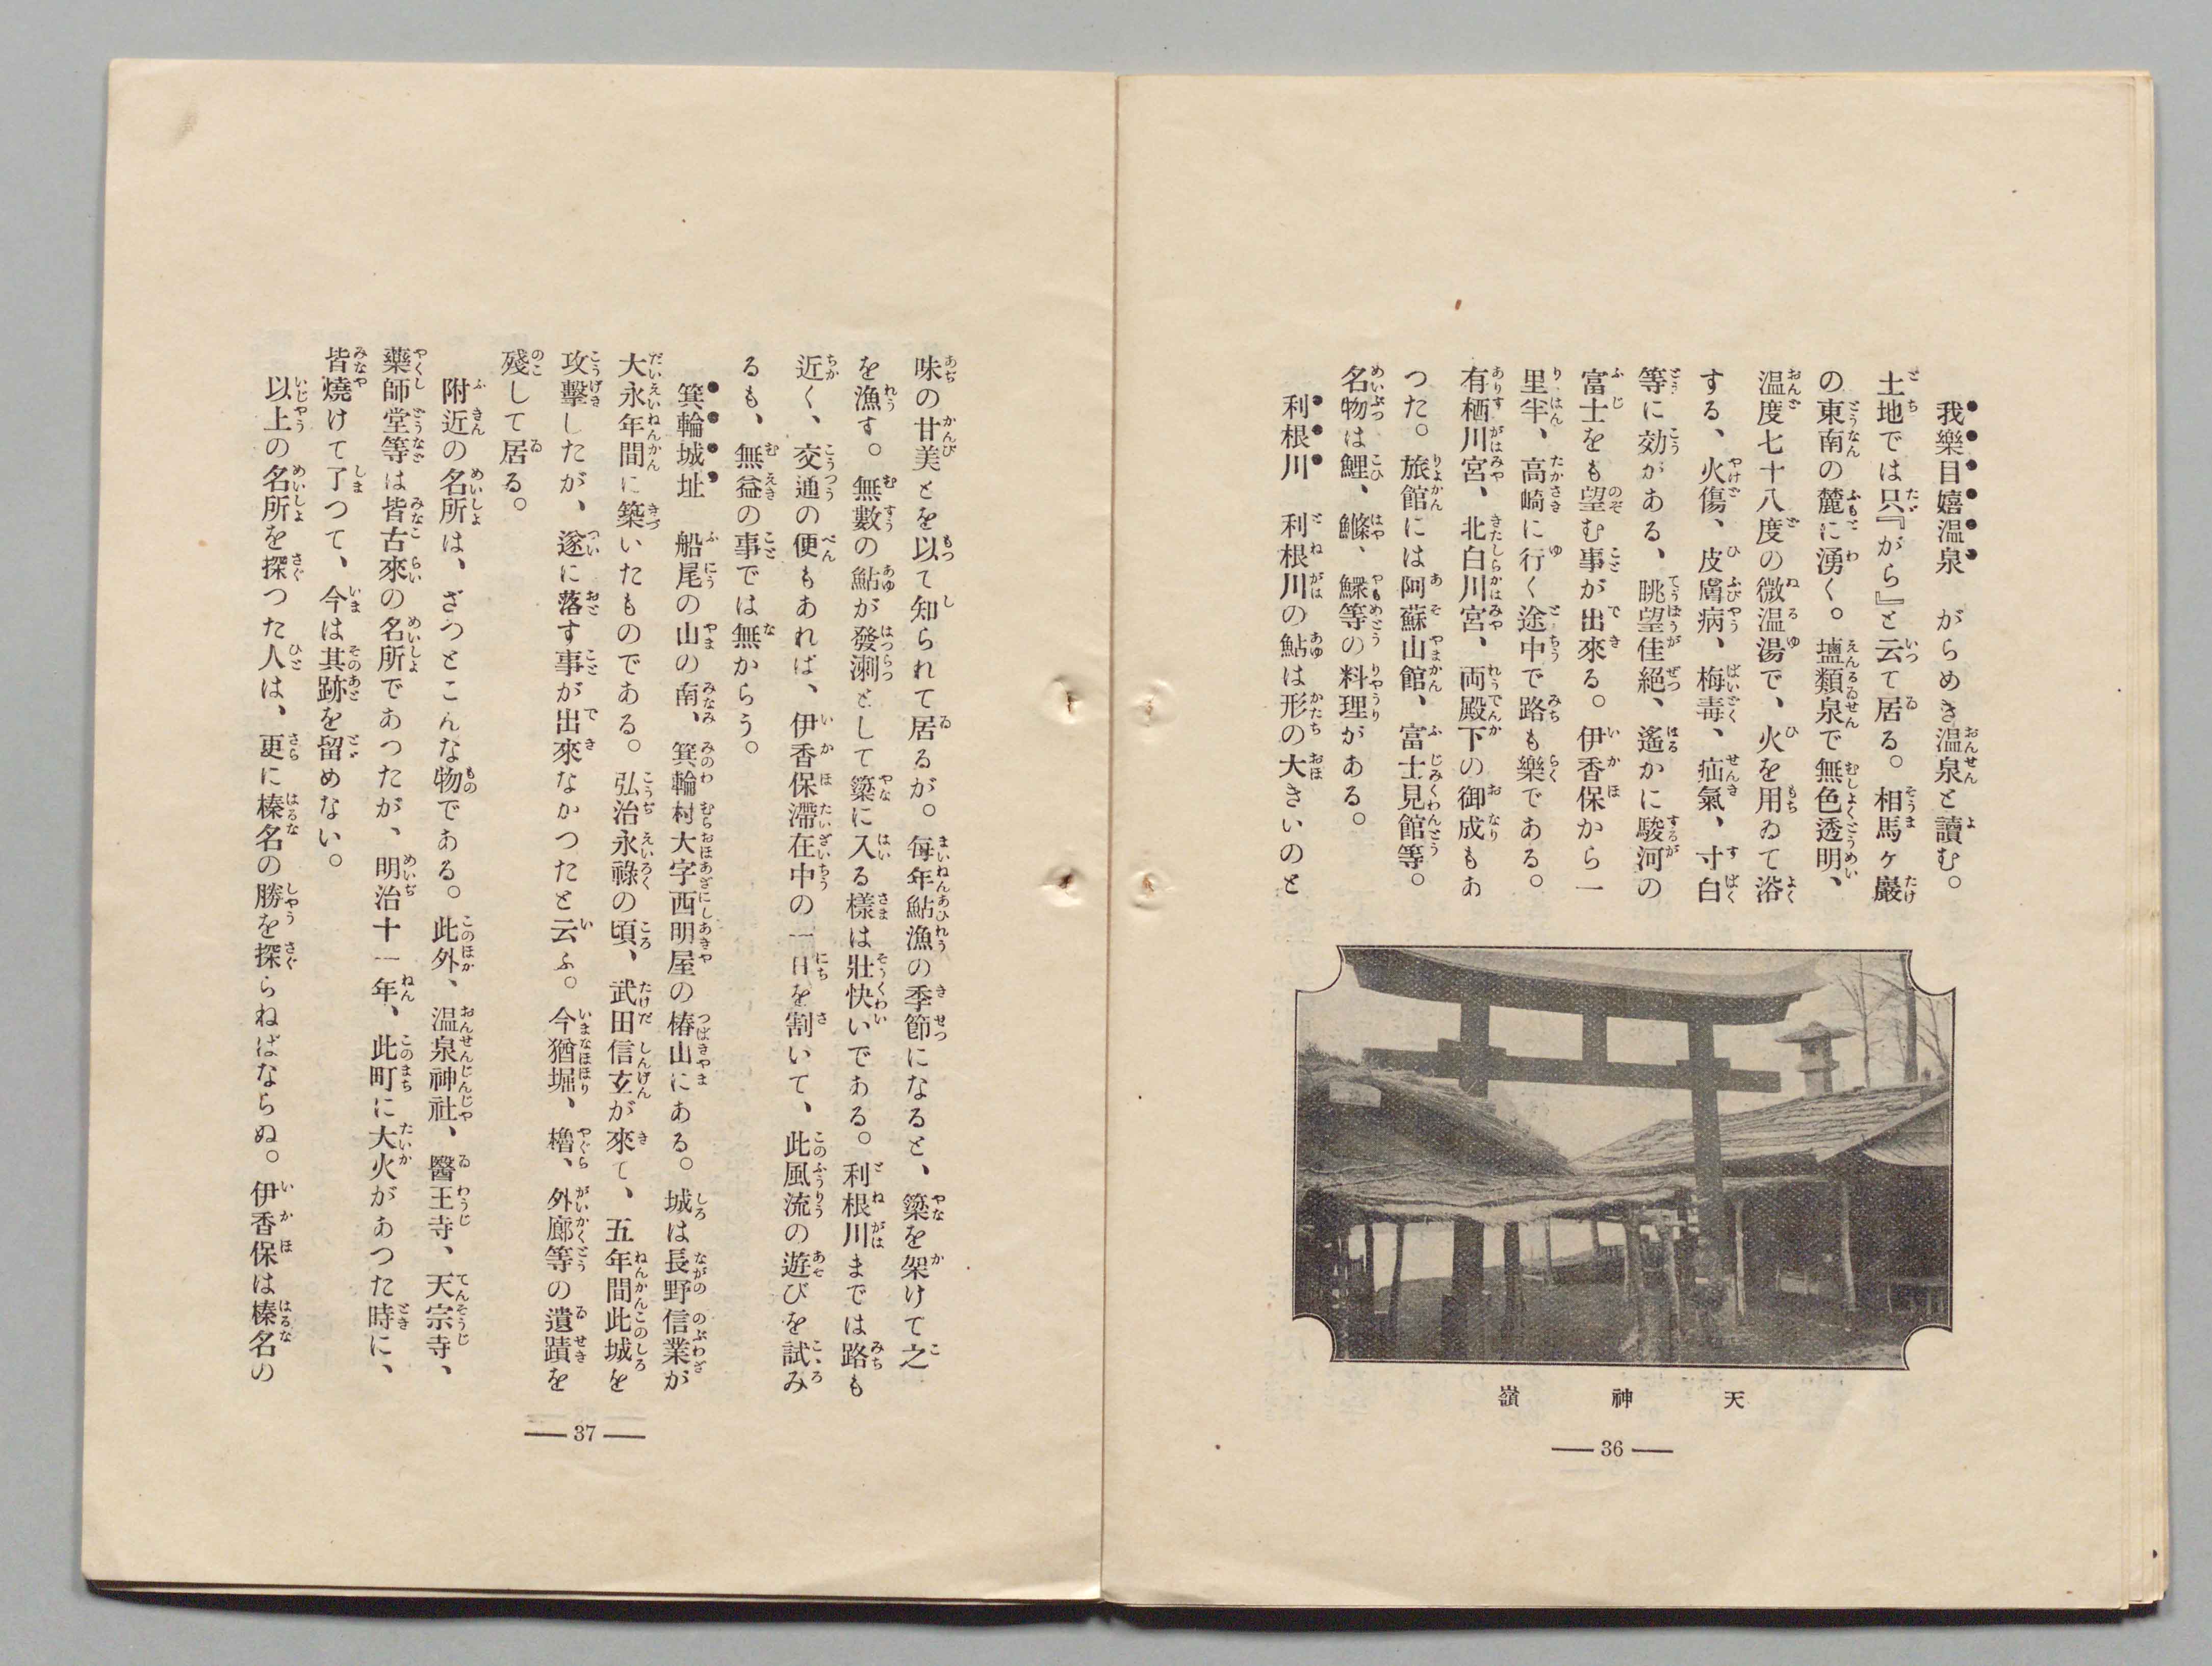 我樂目嬉温泉　がらめき温泉と讀む。
土地では只『がら』と云て居る。相馬ヶ嚴
の東南の麓に湧く。壚類泉で無色透明、
温度七十八度の微温湯で、火を用ゐて浴
する、火傷、皮膚病、梅毒、疝氣、寸白
等に効がある、眺望佳絕、遙かに駿河の
富士をも望む事が出來る。伊香保から一
里半、高崎に行く途中で路も樂である。
有栖川宮、北白川宮、両殿下の御成もあ
つた。旅館には阿蘇山館、富士見館等。
名物は鯉、鰷、鰥等の料理がある。
利根川　利根川の鮎は形の大きいのと
天神嶺
36
味の甘美とを以て知られて居るが。每年鮎漁の季節になると、簗を架けて之
を漁す。無數の鮎が發溂として簗に入る樣は壯快いである。利根川までは路も
近く、交通の便もあれば、伊香保滯在中の一日を割いて、此風流の遊びを試み
るも、無益の事では無からう。
箕輪城址　船尾の山の南、箕輪村大字西明屋の椿山にある。城は長野信業が
大永年間に築いたものである。弘治永祿の頃、武田信玄が來て、五年間此城を
攻擊したが、遂に落す事が出來なかつたと云ふ。今猶堀、櫓、外廊等の遺蹟を
殘して居る。
附近の名所は、ざつとこんな物である。此外、温泉神社、醫王寺、天宗寺、
藥師堂等は皆古來の名所であつたが、明治十一年、此町に大火があつた時に、
皆燒けて了つて、今は其跡を留めない。
以上の名所を探つた人は、更に榛名の勝を探らねばならぬ。伊香保は榛名の
37